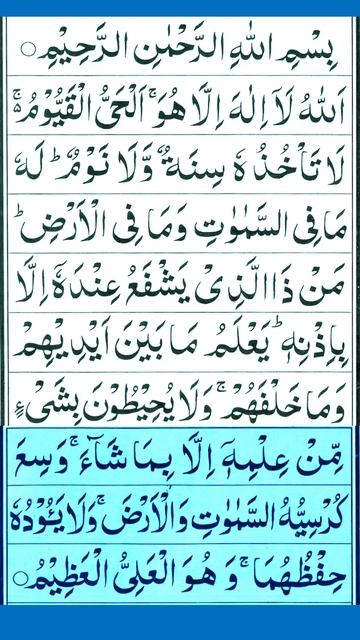 بِسْمِ اللّٰهِ الرَّحْمٰنِ الرَّحِيْمِ ○
اَللّٰهُ لَاۤ اِلٰهَ اِلَّا هُوَ ۚ اَلْحَیُّ الْقَیُّوْمُ ۚ۬
لَا تَاْخُذُهٗ سِنَةٌ وَّلَا نَوْمٌ ؕ لَهٗ
مَا فِی السَّمٰوٰتِ وَمَا فِی الْاَرْضِ ؕ
مَنْ ذَا الَّذِیْ یَشْفَعُ عِنْدَهٗۤ اِلَّا
بِاِذْنِهٖ ؕ یَعْلَمُ مَا بَیْنَ اَیْدِیْهِمْ
وَمَا خَلْفَهُمْ ۚ وَلَا یُحِیْطُوْنَ بِشَیْءٍ
مِّنْ عِلْمِهٖۤ اِلَّا بِمَا شَآءَ ۚ وَسِعَ
كُرْسِیُّهُ السَّمٰوٰتِ وَالْاَرْضَ ۚ وَلَا یَـُٔوْدُهٗ
حِفْظُهُمَا ۚ وَهُوَ الْعَلِیُّ الْعَظِیْمُ ○